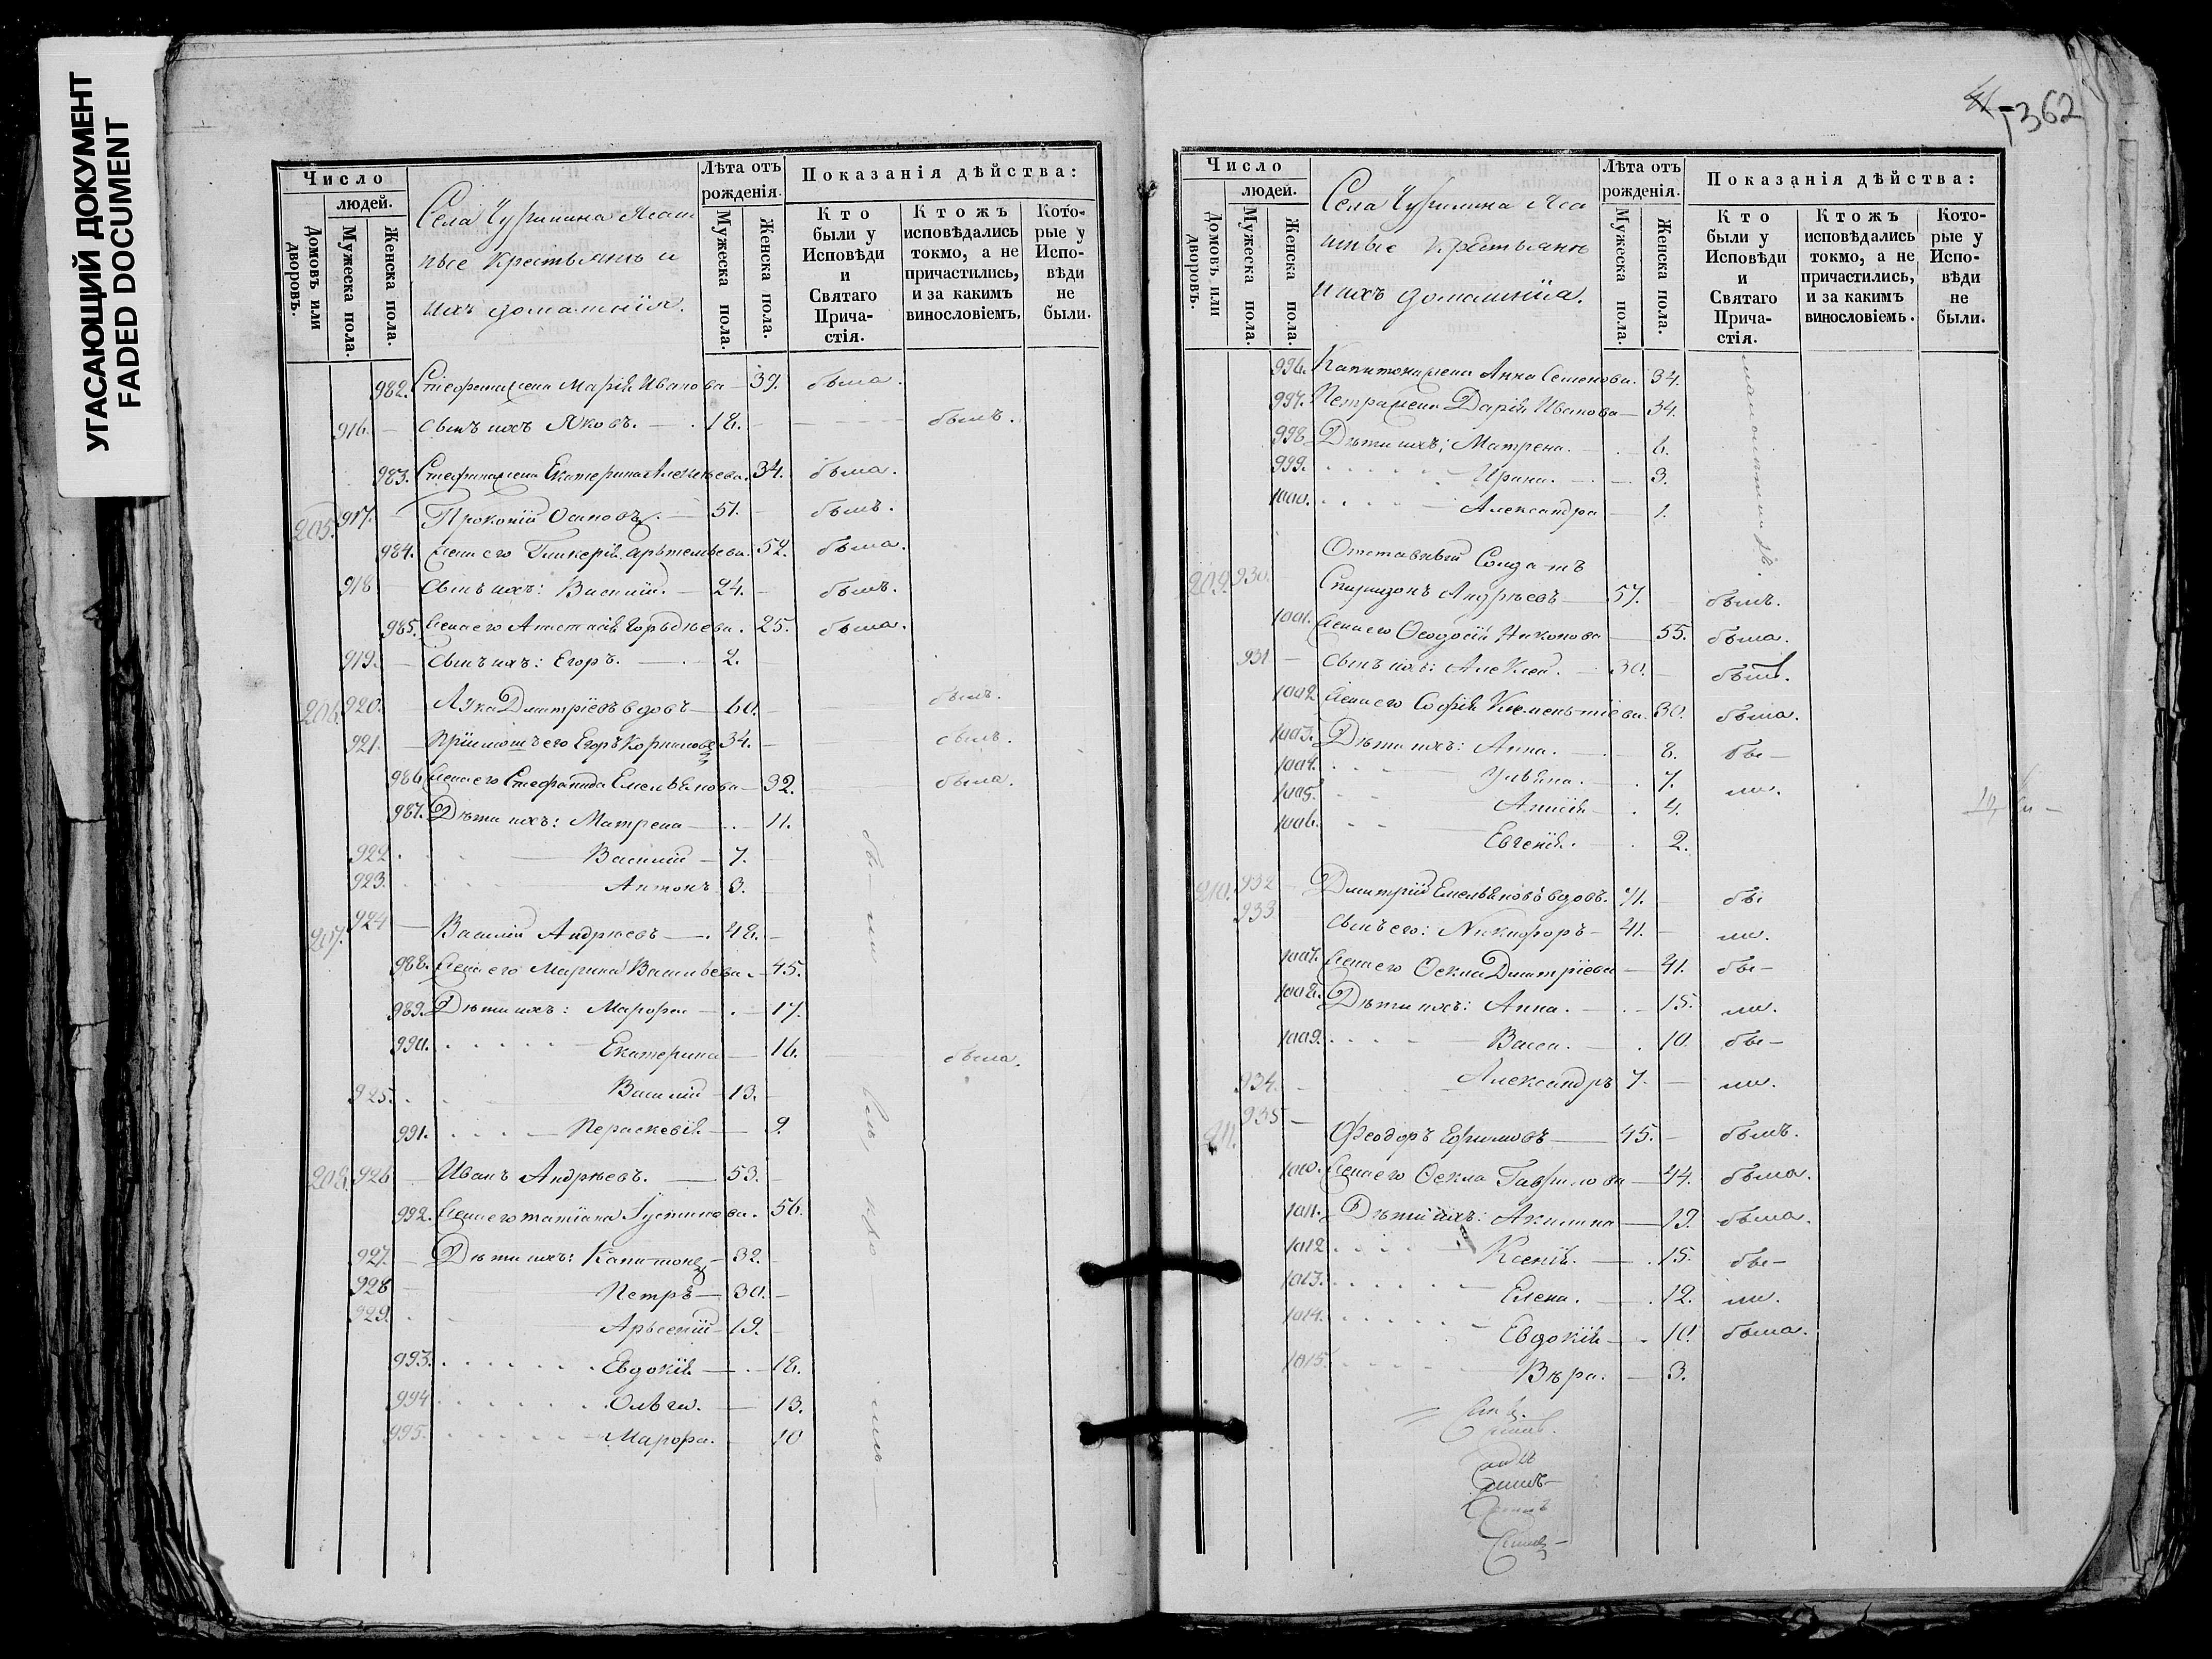 УГАСАЮЩИЙ ДОКУМЕНТ
FADED DOCUMENT
Число
людей.
Домовъ или дворовъ.
Мужеска пола.
Женска пола.
Села Чурилина Ясаш
ные Крестьяне и
ихъ домашнія.
Лѣта отъ рожденія.
Мужеска пола.
Женска пола.
Показанія дѣйства:
Кто были у Исповѣди и Святаго Причастія.
Ктожъ исповѣдались токмо, а не причастились, и за какимъ винословіемъ.
Которые у Исповѣди не были.
982. Стефана жена Марія Иванова — 39. была.
916. — сынъ ихъ Яковъ. — 18. — былъ.
983. Стефана жена Екатерина Алексѣева. 34. была.
205. 917. — Прокопій Осиповъ. — 51. — былъ.
984. Жена его Гликерія Артемьева. 52. была.
918 — сынъ ихъ: Василій. — 24. — былъ.
985. Жена его Анастасія Гордѣева. 25. была.
919. — сынъ ихъ: Егоръ. — 2.
206. 920. — Дмитріевъ вдовъ — 60. — былъ.
921. — Пріимошъ его Егоръ Корниловъ 34. — былъ.
986 Жена его Стефанида Емельянова — 32. была.
987. Дѣти ихъ: Матрена — 11.
922. Василій — 7.
923. Антонъ 3.
207. 924 — Василій Андреевъ — 48. —
988. Жена его Марина Васильева. — 45.
989. Дѣти ихъ: Марфа — 17.
990. Екатерина — 16. была.
925. Василій — 13. —
991. Параскевія — 9.
208. 926 — Иванъ Андреевъ. — 53. —
992. Жена его Татіана Іустинова. 56.
927. — Дѣти ихъ: Капитонъ — 32. —
928 — Петръ — 30. —
929. Арсеній — 19. —
993. Евдокія — 18.
994 Ольга. — 13.
995. Марфа. 10
362
Число
людей.
Домовъ или дворовъ.
Мужеска пола.
Женска пола.
Села Чурилина Яса
шные Крестьяне
и ихъ домашнія.
Лѣта отъ рожденія.
Мужеска пола.
Женска пола.
Показанія дѣйства:
Кто были у Исповѣди и Святаго Причастія.
Ктожъ исповѣдались токмо, а не причастились, и за какимъ винословіемъ.
Которые у Исповѣди не были.
996. Капитона жена Анна Семенова. 34.
997. Петра жена Дарія Иванова — 34.
998. Дѣти ихъ: Матрена. — 6.
999. Ирина. — 3.
1000. Александра — 1.
Отставный Солдатъ
209. 930. Спиридонъ Андреевъ — 57. — былъ.
1001. Жена его Ѳеодосія Никонова — 55. была.
931 — сынъ ихъ: Алексей. — 30. — былъ.
1002 Жена его Софія Клементіева. 30. была.
1003. Дѣти ихъ: Анна. — 8. бы —
1004. Ульяна. — 7. ли.
1005. Анисія — 4.
1006. Евгенія. — 2.
210. 932 — Дмитрій Емельяновъ вдовъ. 71. — бы
933 сынъ его: Никифоръ — 41. — ли.
1007. Жена его Ѳекла Дмитріева — 41. бы —
1008. Дѣти ихъ: Анна. — 15. ли.
1009. Васса. — 10. бы —
934. — Александръ 7. — ли.
211. 935 — Ѳеодоръ Ефимовъ — 45. — былъ.
1010. Жена его Ѳекла Гаврилова — 44. была.
1011. Дѣти ихъ: Акилина — 19. была.
1012 Ксенія. — 15. бы —
1013. Елена. — 12. ли.
1014. Евдокія — 10. была.
1015. Вѣра. — 3.